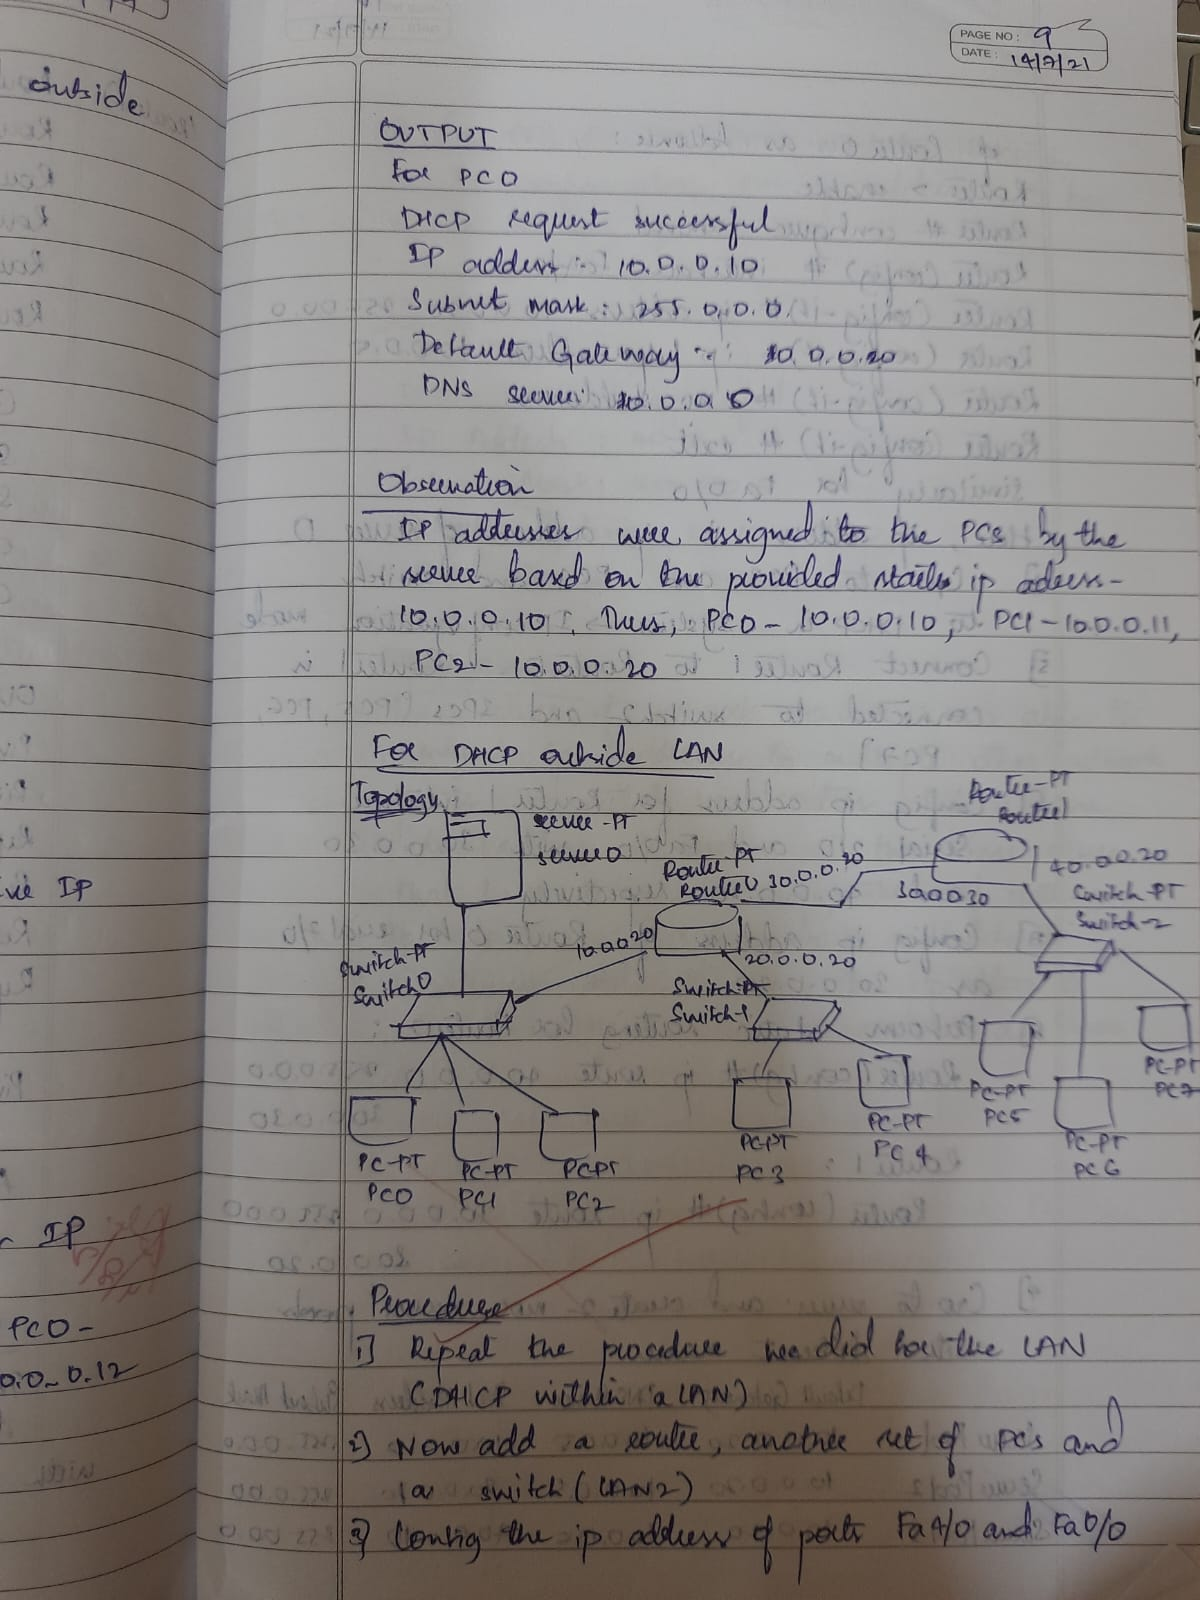 outside
ve IP
IP
PC0 -
0.0.0.12
PAGE NO: 9
DATE: 14/7/21
OUTPUT
For PC0
DHCP request successful
IP address :- 10.0.0.10
Subnet mask : 255.0.0.0.
Default Gateway :- 10.0.0.20
DNS server: 10.0.0.0
Observation
IP addresses were assigned to the PCs by the
server based on the provided ip adress -
10.0.0.10. Thus, PC0 - 10.0.0.10, PC1 - 10.0.0.11,
PC2 - 10.0.0.20
For DHCP outside LAN
Topology
Server-PT
Server0
Router-PT
Router1
Router-PT
Router0
30.0.0.20
30.0.0.30
40.0.0.20
Switch-PT
Switch-2
Switch-PT
Switch0
10.0.0.20
20.0.0.20
Switch-PT
Switch-1
PC-PT
PC0
PC-PT
PC1
PC-PT
PC2
PC-PT
PC3
PC-PT
PC4
PC-PT
PC5
PC-PT
PC6
PC-PT
PC7
Procedure
1) Repeat the procedure we did for the LAN
(DHCP within a LAN)
2) Now add a router, another set of PC's and
a switch (LAN2)
3) Config the ip address of ports Fa4/0 and Fa0/0